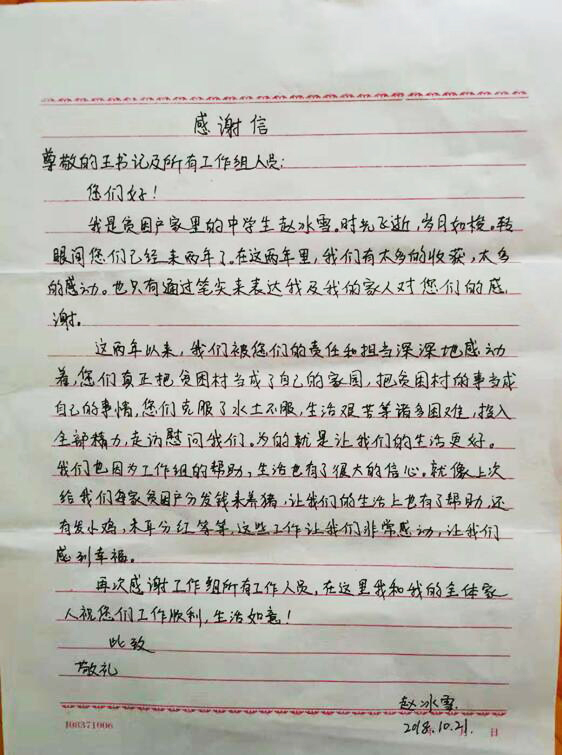 感谢信
尊敬的王书记及所有工作组人员：
您们好！
我是贫困户家里的中学生赵冰雪。时光飞逝，岁月如梭。转
眼间您们已经来两年了。在这两年里，我们有太多的收获，太多
的感动。也只有通过笔尖来表达我及我的家人对您们的感
谢。
这两年以来，我们被您们的责任和担当深深地感动
着，您们真正把贫困村当成了自己的家园，把贫困村的事当成
自己的事情，您们克服了水土不服，生活艰苦等诸多困难，投入
全部精力，走访慰问我们。为的就是让我们的生活更好。
我们也因为工作组的帮助，生活也有了很大的信心。就像上次
给我们每家贫困户分发钱来养猪，让我们的生活上也有了帮助，还
有发小鸡，木耳分红等等，这些工作让我们非常感动，让我们
感到幸福。
再次感谢工作组所有工作人员，在这里我和我的全体家
人祝您们工作顺利，生活如意！
此致
敬礼
赵冰雪
2018.10.21.
J08371006 日